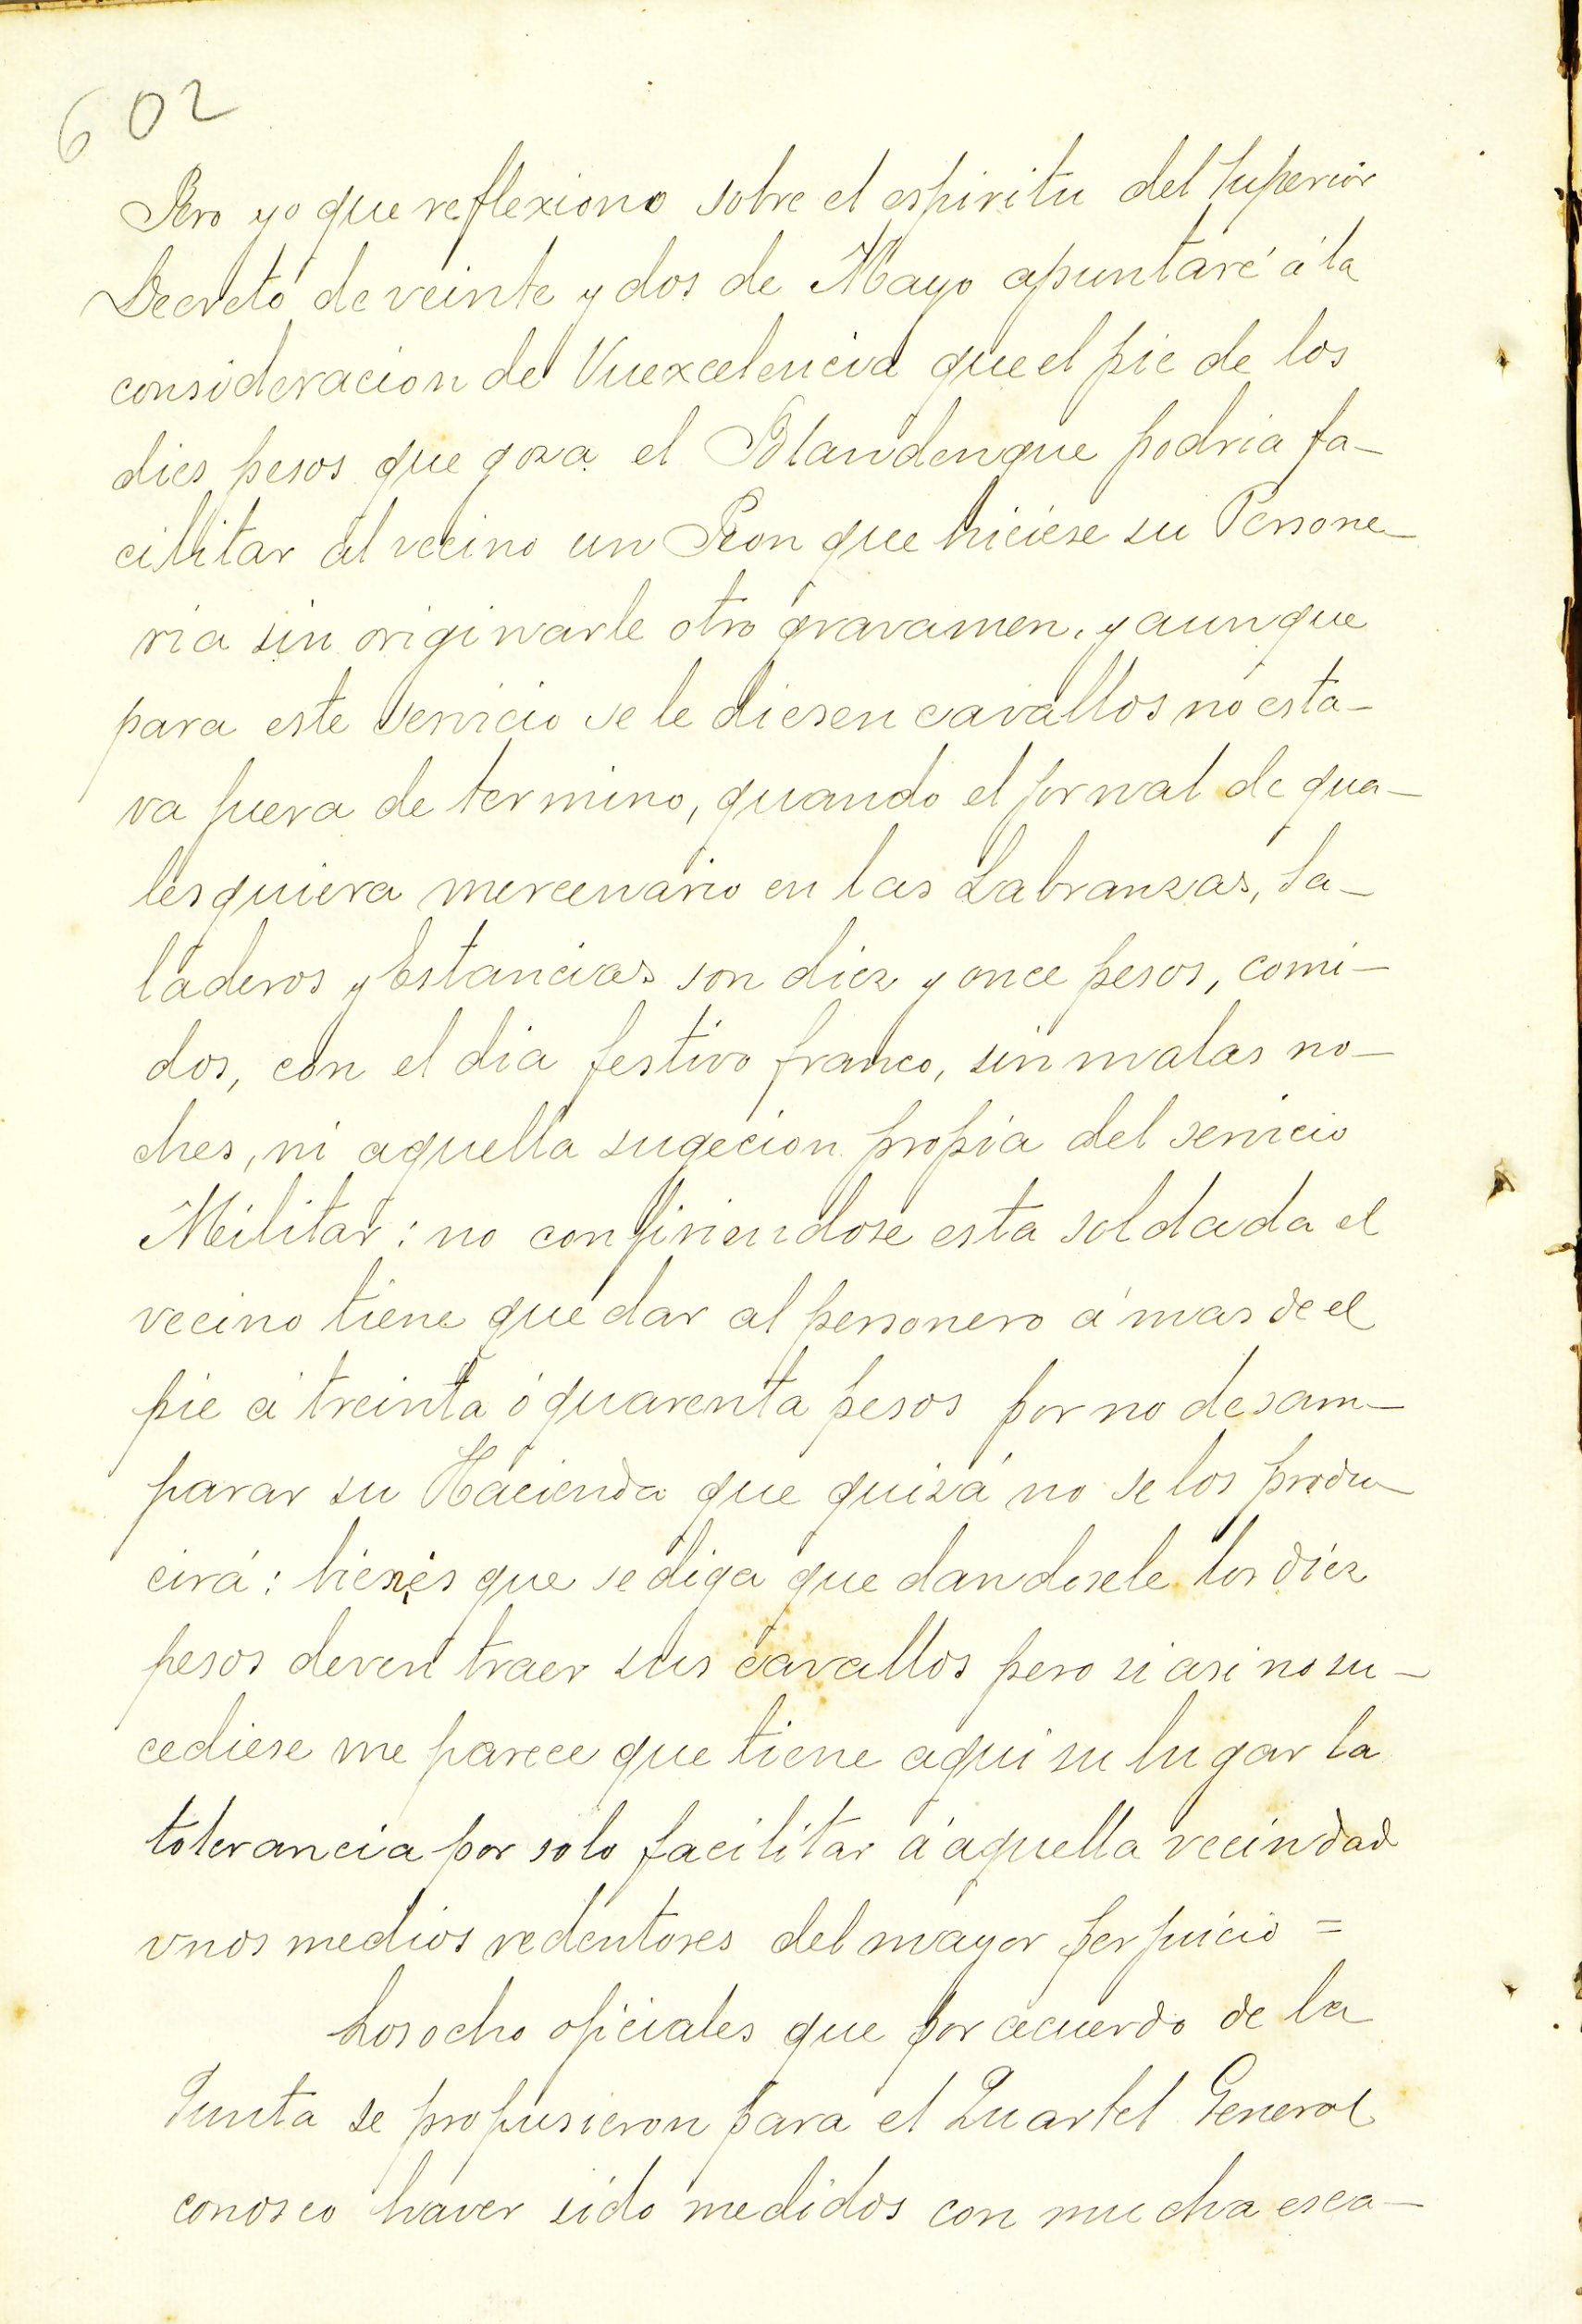 602
Pero yo que reflexiono sobre el espiritu del Superior
Decreto de veinte y dos de Mayo apuntaré á la
consideracion de Vuexcelencia que el pie de los
dies pesos que goza el Blandengue podria fa-
cilitar al vecino un Peon que hiciese su Persone-
ria sin originarle otro gravamen, y aunque
para este servicio se le diesen cavallos no esta-
va fuera de termino, quando el jornal de qua-
lesquiera mercenario en las Labranzas, Sa-
laderos y Estancias son diez y once pesos, comi-
dos, con el dia festivo franco, sin malas no-
ches, ni aquella sugecion propia del servicio
Militar: no confiriendose esta soldada el
vecino tiene que dar al personero á mas de el
pie á treinta ó quarenta pesos por no desam-
parar su Hacienda que quizá no se los produ-
cirá: bien es que se diga que dandosele los diez
pesos deven traer sus cavallos pero si asi no su-
cediese me parece que tiene aqui su lugar la
tolerancia por solo facilitar á aquella vecindad
vnos medios redentores del mayor perjuicio =
Los ocho oficiales que por acuerdo de la
Junta se propusieron para el Quartel General
conosco haver sido medidos con mucha esca-